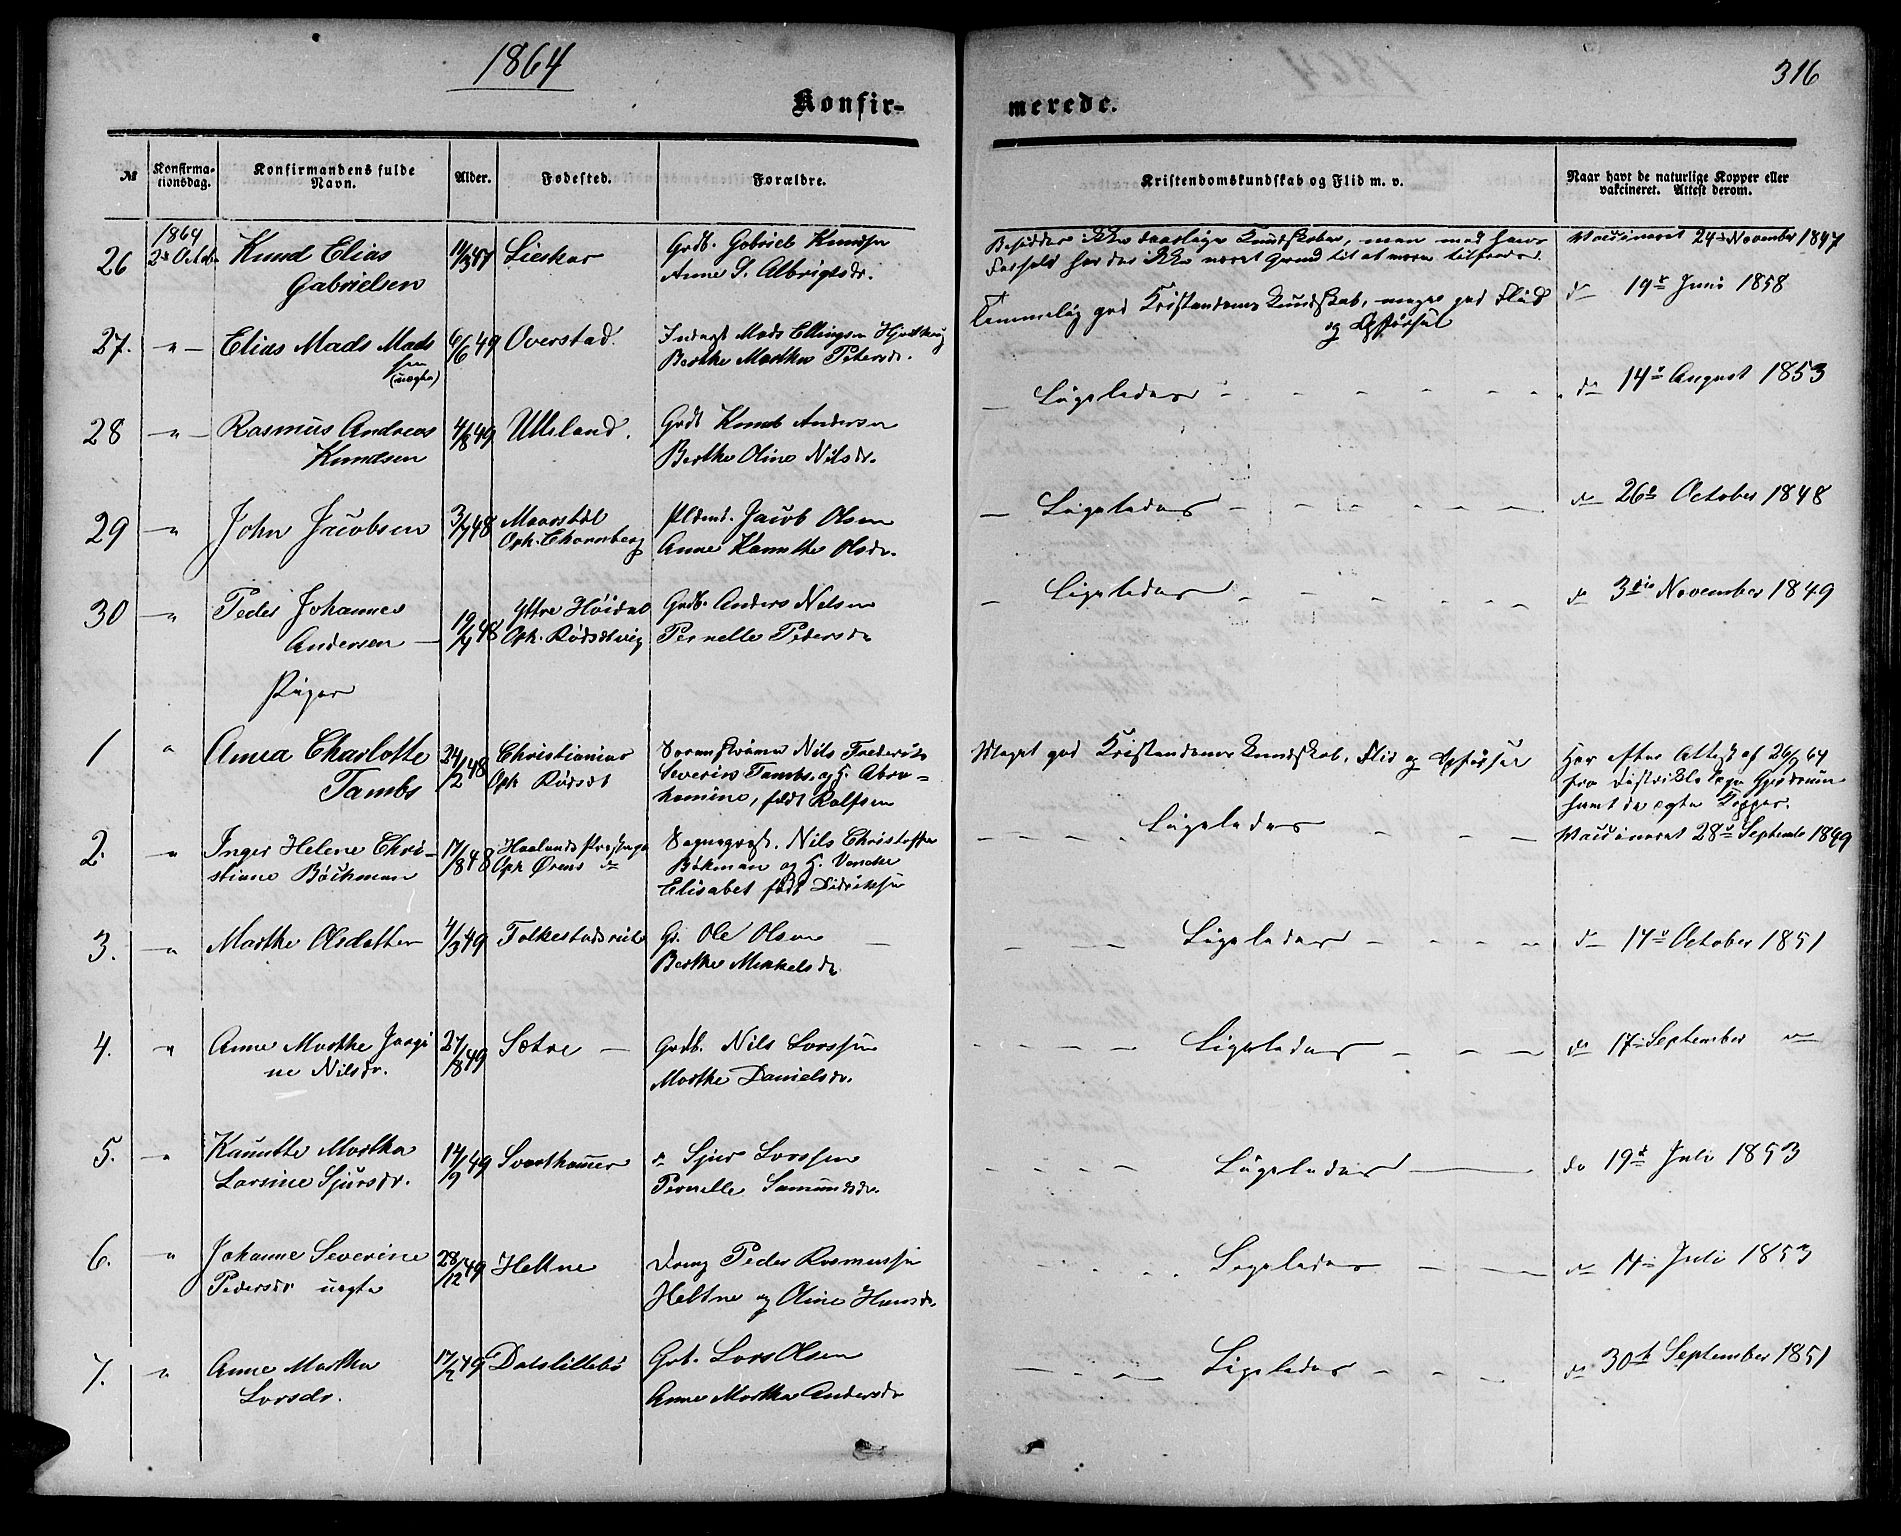 1864
316
Konfir-
merede.
№
Konfirma-
tionsdag.
Konfirmandens fulde
Navn.
Alder.
Fødested.
Forældre.
Kristendomskundskab og Flid m. v.
Naar havt de naturlige Kopper eller
vakcineret. Attest derom.
26
1864
2den October
Knud Elias
Gabrielsen
11/3 47
Lieskar
Grdb. Gabriel Knudsen
Anne S. Albrigtsdr.
Besidder ikke daarlige Kundskaber, men med hans
Forhold har der ikke været Grund til at være tilfreds.
Vaccineret 24de November 1847
27.
Elias Mads Mads
sen
(uægte)
6/6 49
Overstad.
Inderst Mads Ellingsen
Berthe Marthe Petersdr.
Temmelig god Kristendoms Kundskab, meget god Flid
og Opførsel
do 19de Juni 1858
28
Rasmus Andreas
Knudsen
4/8 49
Ulleland.
Grdb Knud Andersen
Berthe Oline Nilsdr.
Ligeledes
do 14de August 1853
29
John Jacobsen
3/7 48
Maarstøl
Oph.
Pldsmd. Jacob Olsen
Anne Kanutte Olsdr.
Ligeledes
do 26de October 1848
30
Peder Johannes
Andersen
19/9 48
Yttre Høidal
Oph. Rødsætvig
Grdb. Anders Nilsen
Pernelle Pedersdr
Ligeledes
do 3die November 1849
Piger
1
Anna Charlotte
Tambs
24/12 48
Christiania
Oph Rødset
Nils Frederik
Severin Tambs og H. Abra-
hamine, født Rolfsen
Meget god Kristendoms Kundskab, Flid og Opførsel
Har efter Attest af 26/9 64
fra Distriktslæge
havt de ægte Kopper.
2.
Inger Helene Chri-
stiane Böckman
17/8 48
Haalands Præstegj
Oph Ørens do
Sognepræst. Nils Christoffer
Böckman og H.
Elisabet født Didriksen
Ligeledes
Vaccineret 28de Septembr 1849
3.
Marthe Olsdatter
4/3 49
Folkestadsvik
G. Ole Olsen
Berthe Mikkelsdr
Ligeledes
do 14de October 1851
4.
Anne Marthe Jørgi
ne Nilsdr.
27/8 49
Sætre
Grdb. Nils Larssen
Marthe Danielsdr.
Ligeledes
do 17de September do
5.
Kanutte Martha
Larsine Sjursdr.
14/9 49
Svarthamer
do Sjur Larssen
Pernelle Samundsdr.
Ligeledes
do 19de Juli 1853
6.
Johanne Severine
Pedersdr uægte
28/12 49
Heltne
Dreng Peder Rasmussen
Heltne og Oline Hansdr.
Ligeledes
do 14de Juli 1853
7.
Anne Martha
Larsdr.
17/2 49
Dalslillebø
Grb. Lars Olsen
Anne Martha Andersdr
Ligeledes
do 30te September 1851